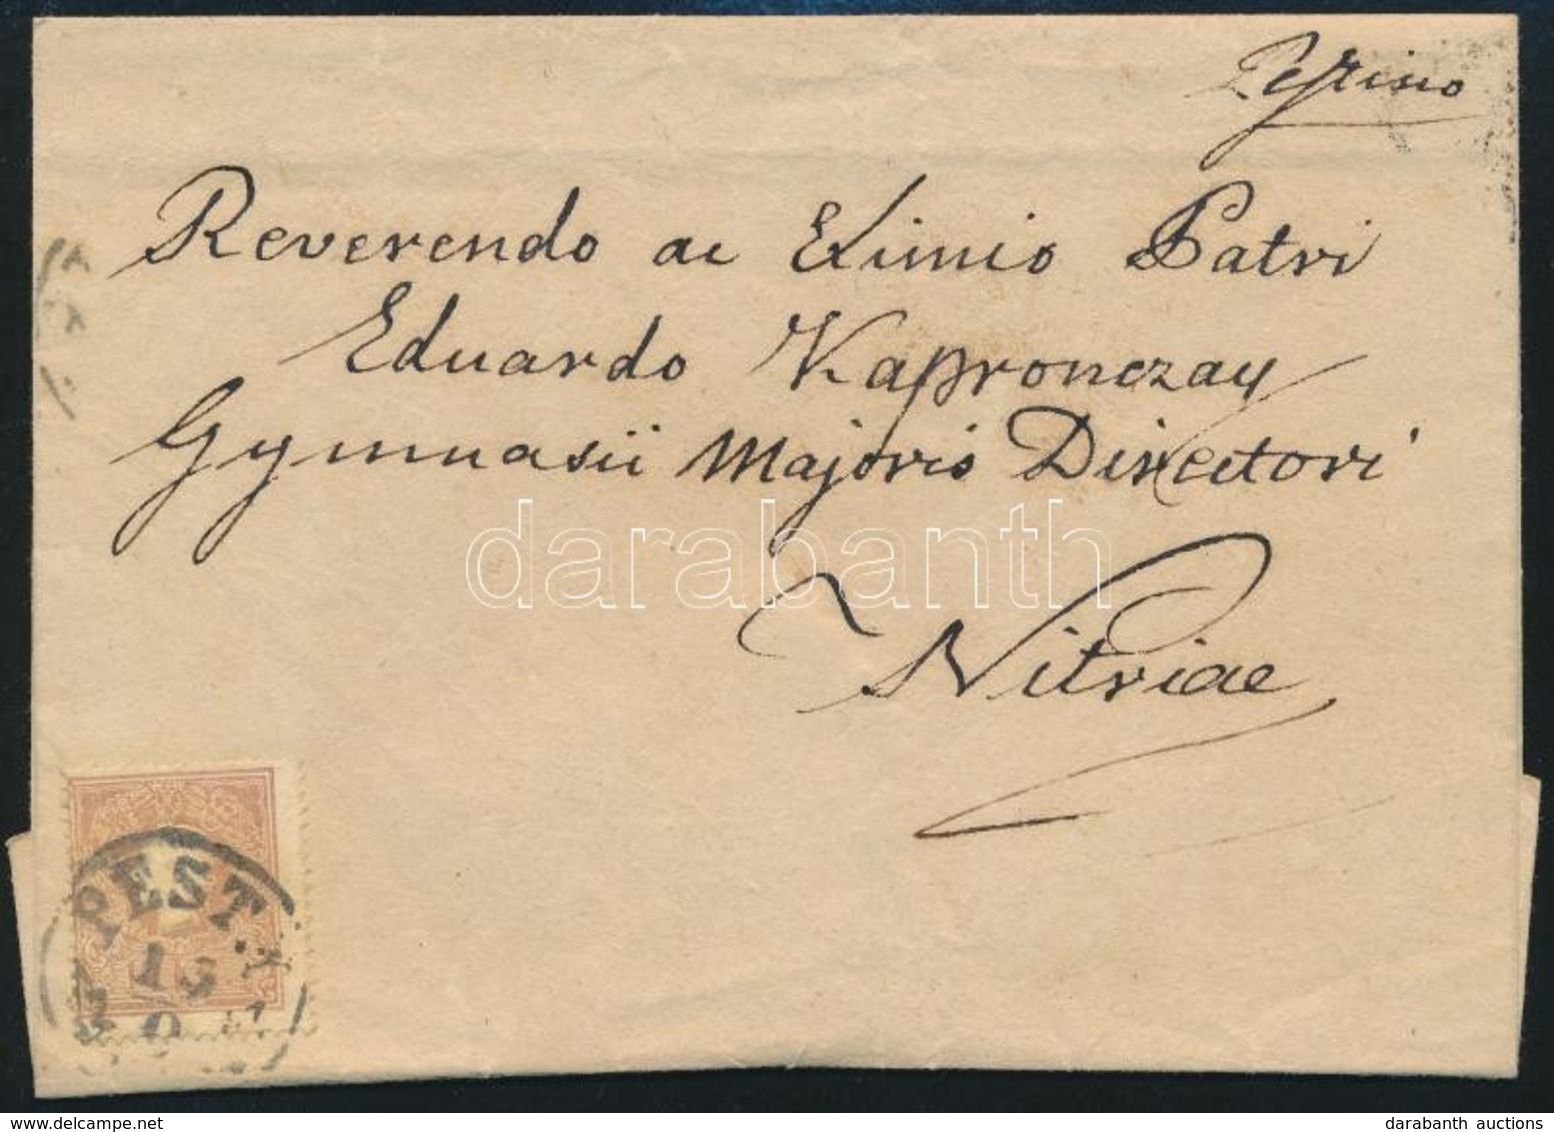 Pestino
Reverendo ac Eximio Patri
Eduardo Kapronczay
Gymnasii Majoris Directori
Nitriae
darabanth
PEST
15
9
darabanth auctions